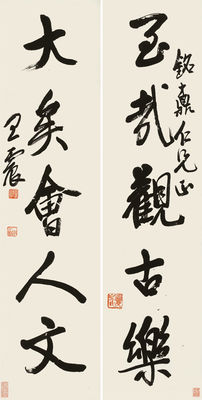 至哉觀古樂
銘仁兄正
大矣會人文
王震